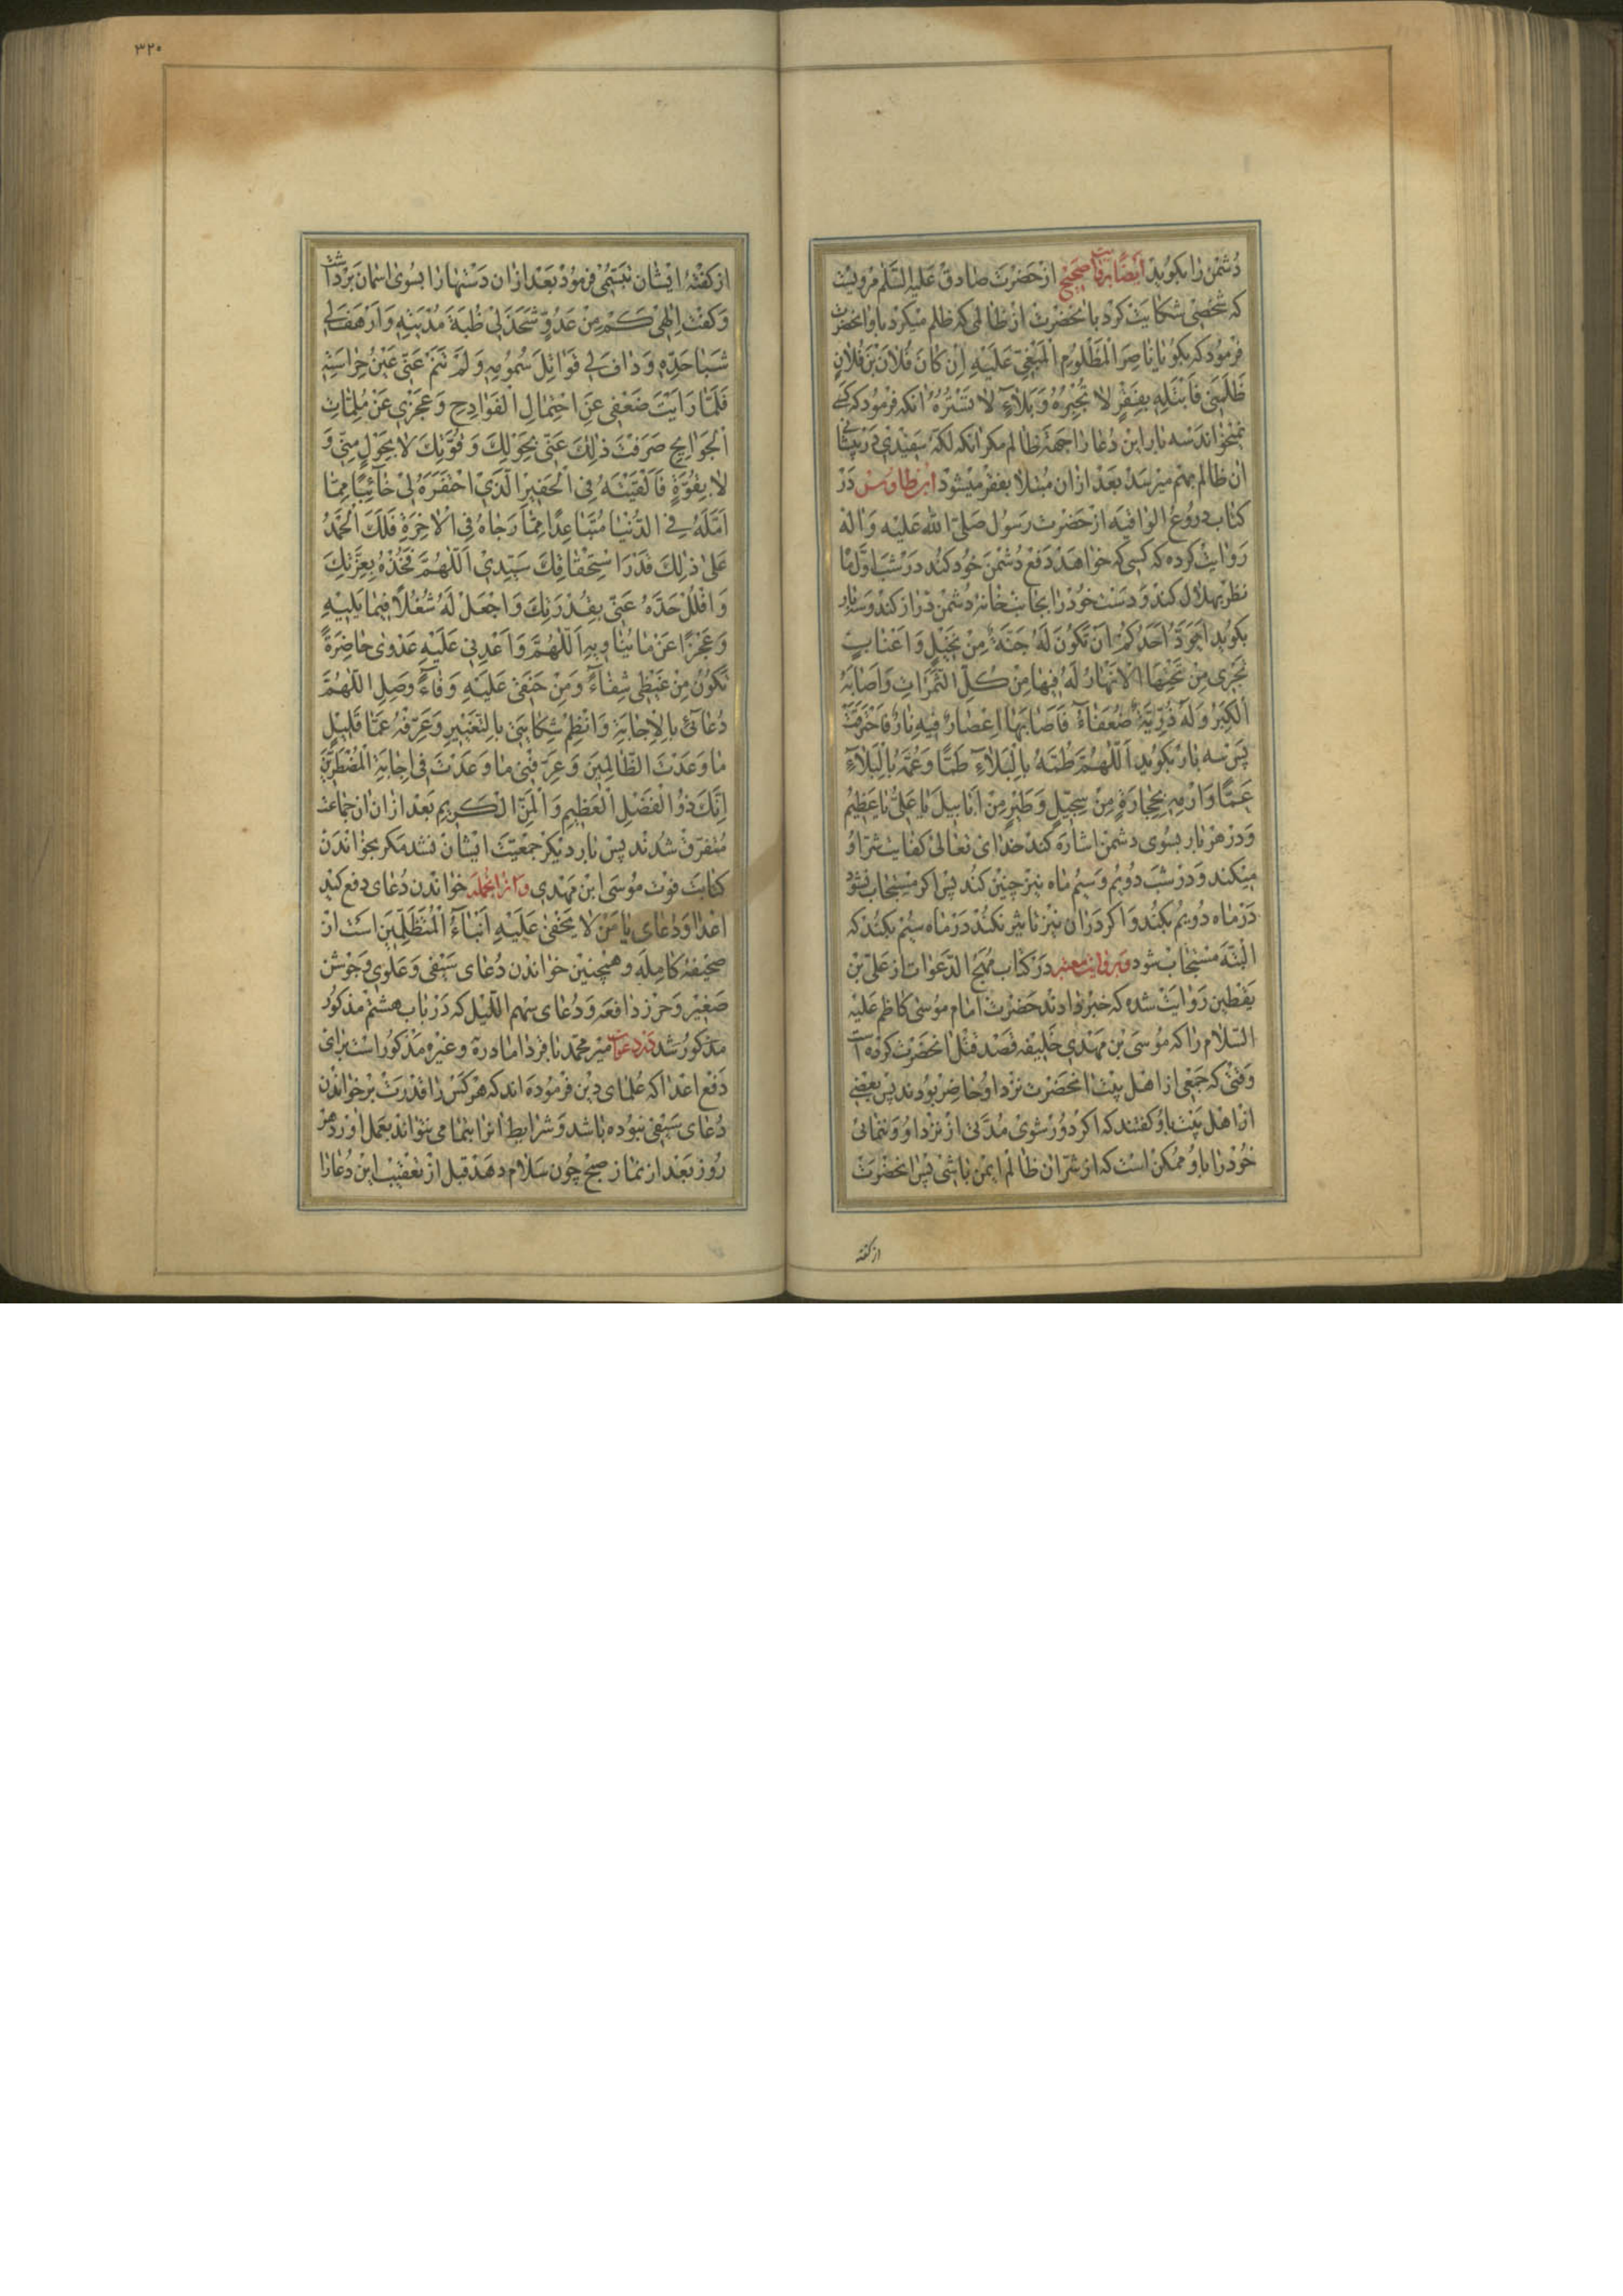 دُشْمَنْ رٰا بِکوُیَدْ ایضًا بروایت صحیح ازْ حَضْرَتِ صٰادِقْ عَلَیْهِ السَّلٰمْ مرویست
که شَخْصی شِکایَتْ کَرْد باٰنحَضْرَتْ اَزْ ظالمی که ظلم میکرْد باو انحضرت
فرمُود که بکوُ یا ناصِرَ الْمَظْلوُمِ الْمَبْغِیِّ عَلَیْهِ اِنَّ کانَ فُلانَ بْنَ فُلانٍ
ظَلَمَنی فَابْتَلِهِ بِفَقْرٍ لا تَجْبُرُهُ وَ بَلاٰءٍ لا تَسْتُرُهُ انکه فرمُود که کسی
نمیخواند سه بار این دُعا را جَههْ ظالم مکر انکه لکهٔ سَفیدی دَر پیشانی
ان ظالم بهم میرسَدْ بَعْد ازان مُبْتلا بفقر میشود ابن طاوس دَرْ
کتاب دروع الواقیه از حَضْرت رَسوُل صَلّی الله عَلَیْه وَ اٰلهْ
رَوایت کرْده که کسی که خواهَد دَفْع دُشْمَن خَود کند دَر شَبِ اوّل ماه
نظر بهلال کند وَ دَست خُودْ را بجانب خانهٔ دشمن دراز کند و سه بار
بکوُید اَیَوَدُّ اَحَدُکُمْ اَنْ تَکوُنَ لَهُ جَنَّةٌ مِنْ نَخیلٍ وَ اَعْنابٍ
تَجْری مِنْ تَحْتِهَا الْاَنْهارُ لَهُ فیها مِنْ کُلِّ الثَّمَراتِ وَ اَصابَهُ
الْکِبَرُ وَ لَهُ ذُرِّیَّةٌ ضُعَفاٰءُ فَاَصابَها اِعْصارٌ فیهِ نارٌ فَاحْتَرَقَتْ
پَسْ سه بار بکوُید اَللّٰهُمَّ طُمَّهُ بِالْبَلاٰءِ طَمًّا وَ عُمَّهُ بِالْبَلاٰءِ
عَمًّا وَ ارْمِهِ بِحِجارَةٍ مِنْ سِجّیلٍ وَ طَیْرٍ مِنْ اَبابیلَ یا عَلِیُّ یا عَظیمُ
وَ دَرْ هَرْ بار بسُوی دشمن اشارَه کند خدای تَعالی کفایت شر او
میکند و دَرْ شَب دُویم وَ سیُم ماه نیز چنین کُند پس اکر مستجاب نشود
دَرْ ماه دُویم بکند وَ اکر دَران نیز تاثیر نکُند دَرْ ماه سیُم بکند که
البته مُستجاب شود و بروایت معتبر دَر کتاب مُهَج الدَّعوات از علیّ بْن
یَقْطین رَوایَت شده که خبر دادند حَضْرت امام موُسی کاظم عَلیْه
السّلام را که موُسَی بْن مَهْدی خَلیفه قَصْد قتل انحضرت کرده است
وَقتی که جَمْعی از اهْل بیْت انحَضْرت نزْد او حاضِر بوُدند پس بعْضی
از اهْل بَیْت باو کفتند که اکر دوُر شوی مُدّتی ازْ نزْد او وَ ننمائی
خُود را باو ممکن اسْت که از شرّ ان ظالم ایمن باشی پس انحَضْرت
از کفته
۳۲۰
از کفتهٔ ایشان تبسّمی فرموُد بَعْد ازان دَسْتها را بسُوی اسْمان بَرْداشت
وَ کفت اِلٰهی کَمْ مِنْ عَدُوٍّ شَحَذَ لی ظُبَةَ مُدْیَتِهِ وَ اَرْهَفَ لی
شَبا حَدِّهِ وَ دافَ لی قَواتِلَ سُموُمِهِ وَ لَمْ تَنَمْ عَنّی عَیْنُ حِراسَتِهِ
فَلَمّا رَاَیْتَ ضَعْفی عَنِ احْتِمالِ الْفَوادِحِ وَ عَجْزی عَنْ مُلِمّاتِ
الْجَوائِحِ صَرَفْتَ ذٰلِکَ عَنّی بِحَوْلِکَ وَ قُوَّتِکَ لا بِحَوْلٍ مِنّی وَ
لا بِقُوَّةٍ فَاَلْقَیْتَهُ فِی الْحَفیرِ الَّذِی احْتَفَرَهُ لی خآئِبًا مِمّا
اَمَّلَهُ فِی الدُّنْیا مُتَباعِدًا مِمّا رَجاهُ فِی الْاٰخِرَةِ فَلَکَ الْحَمْدُ
عَلیٰ ذٰلِکَ قَدْرَ اسْتِحْقاقِکَ سَیِّدی اَللّٰهُمَّ فَخُذْهُ بِعِزَّتِکَ
وَ افْلُلْ حَدَّهُ عَنّی بِقُدْرَتِکَ وَ اجْعَلْ لَهُ شُغْلًا فیما یَلیهِ
وَ عَجْزًا عَنْ ما یُناویهِ اَللّٰهُمَّ وَ اَعْدِنی عَلَیْهِ عَدْویٰ حاضِرَةً
تَکوُنُ مِنْ غَیْظی شِفاٰءً وَ مِنْ حَنَقی عَلَیْهِ وَفاٰءً وَ صِلِ اللّٰهُمَّ
دُعائی بِالْاِجابَةِ وَ انْظِمْ شِکایَتی بِالتَّغْییرِ وَ عَرِّفْهُ عَمّا قَلیلٍ
ما وَعَدْتَ الظّالِمینَ وَ عَرِّفْنی ما وَعَدْتَ فی اِجابَةِ الْمُضْطَرّینَ
اِنَّکَ ذوُ الْفَضْلِ الْعَظیمِ وَ الْمَنِّ الْکَریمِ بَعْد ازان ان جَماعت
مُتفرّق شُدند پس بار دیکر جمعیّت ایشان نشد مکر بجهة خواندن
کتابَت فوْت موُسَی ابْن مَهْدی و از انجمله خوْاندن دُعای دفع کید
اعْدا و دُعای یا مَنْ لا یَخْفیٰ عَلَیْهِ اَنْباٰءُ الْمُتَظَلِّمینَ است از
صحیفهٔ کامِله و همچنین خواندن دُعای سَیْفی وَ عَلَوی وَ جَوْشن
صَغیر وَ حرز دافعَه وَ دُعای سهم اللّیل که دَر باب هشتم مذکوُر
مذکوُر شد میر محمّد باقر داماد ره و غیره مذکوُر است برٰای
دَفْع اعْدا که عُلمای دین فرْموُده اند که هر کس را قدْرت بر خواندن
دُعای سَیْفی نبوُده باشد وَ شرایط انرا بتمامی نتواند بعمل اورد هر
رُوز بعْد از نماز صبح چوُن سَلام دهد قبل از تعْقیب این دُعا را